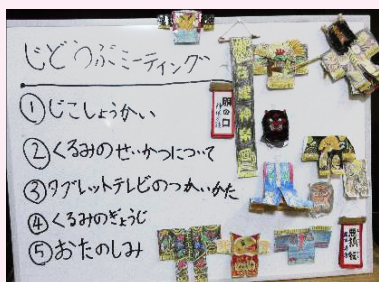 じどうぶミーティング
①じこしょうかい
②くるみのせいかつについて
③タブレットテレビのつかいかた
④くるみのぎょうじ
⑤おたのしみ